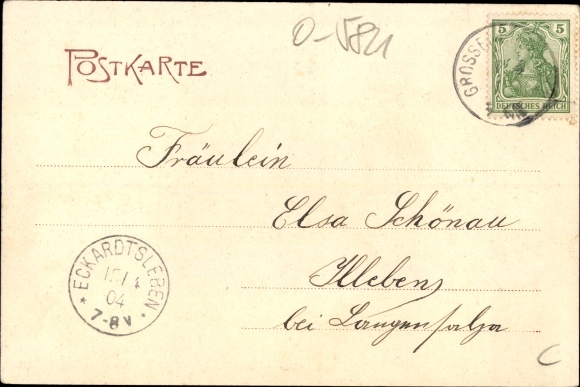 O-5821
POSTKARTE
5 5
DEUTSCHES REICH
GROSSE
Fräulein
Elsa Schönau
Illeben,
bei Langensalza
ECKARDTSLEBEN
04
7-8V